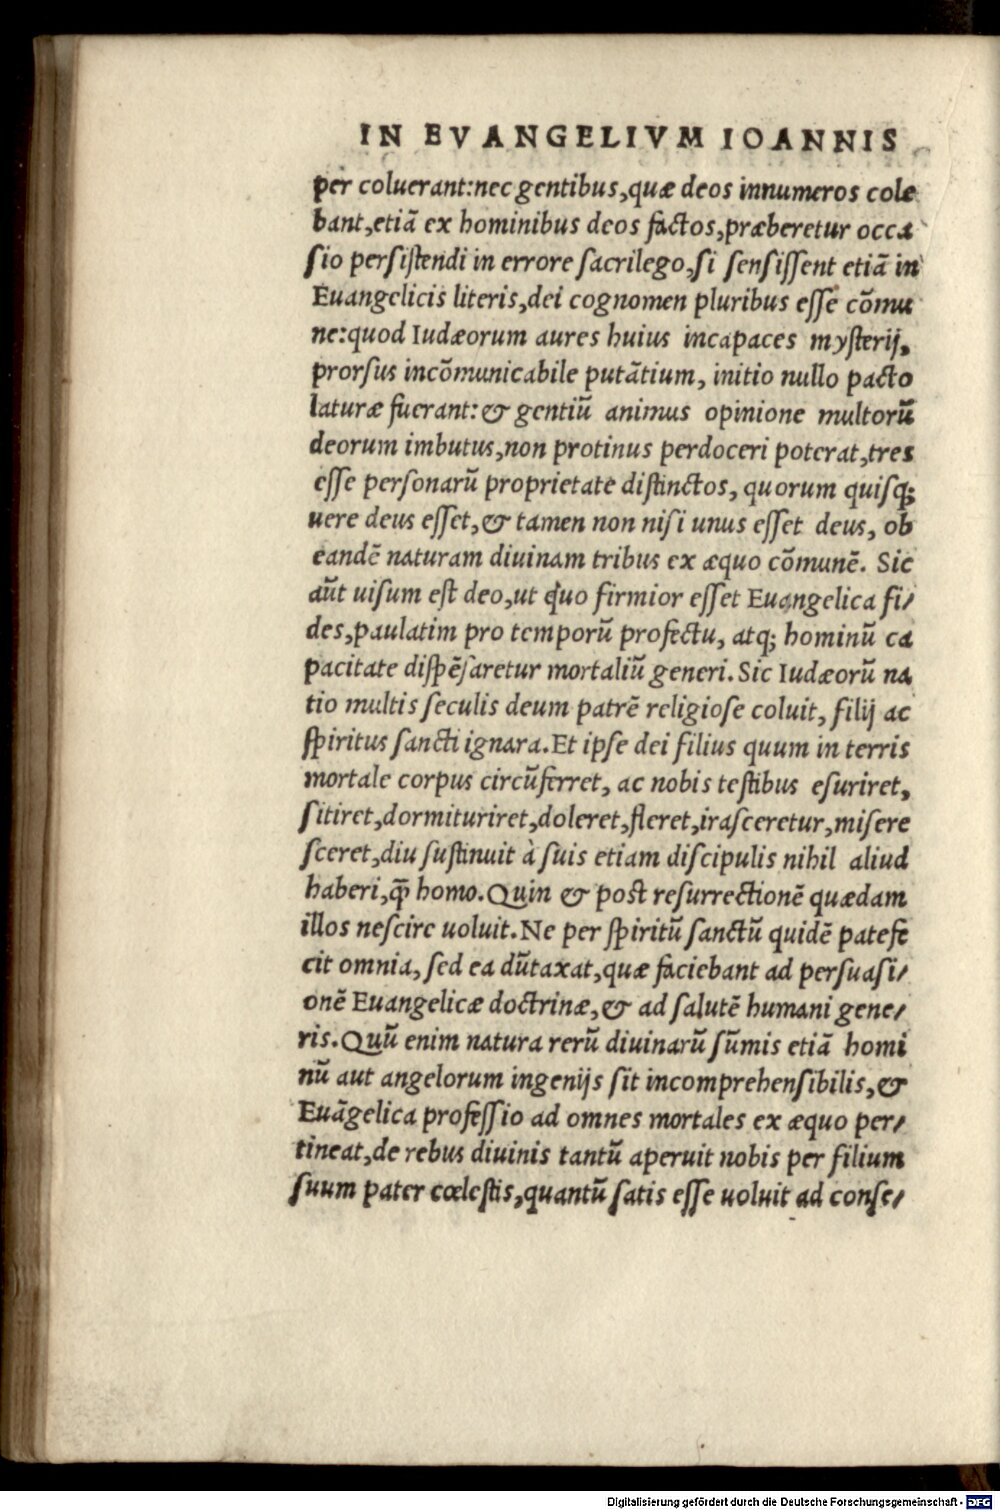 IN EVANGELIVM IOANNIS
per coluerant:nec gentibus,quæ deos innumeros cole
bant,etiã ex hominibus deos factos,præberetur occa
sio persistendi in errore sacrilego,si sensissent etiã in
Euangelicis literis,dei cognomen pluribus esse cõmu
ne:quod Iudæorum aures huius incapaces mysterij,
prorsus incõmunicabile putãtium, initio nullo pacto
laturæ fuerant:& gentiũ animus opinione multorũ
deorum imbutus,non protinus perdoceri poterat,tres
esse personarũ proprietate distinctos, quorum quisq;
uere deus esset,& tamen non nisi unus esset deus, ob
eandẽ naturam diuinam tribus ex æquo cõmunẽ. Sic
aũt uisum est deo,ut quo firmior esset Euangelica fi/
des,paulatim pro temporũ profectu, atq; hominũ ca
pacitate dispẽsaretur mortaliũ generi. Sic Iudæorũ na
tio multis seculis deum patrẽ religiose coluit, filij ac
spiritus sancti ignara.Et ipse dei filius quum in terris
mortale corpus circũferret, ac nobis testibus esuriret,
sitiret,dormituriret,doleret,fleret,irasceretur,misere
sceret,diu sustinuit à suis etiam discipulis nihil aliud
haberi,q̃ homo. Quin & post resurrectionẽ quædam
illos nescire uoluit. Ne per spiritũ sanctũ quidẽ patefe
cit omnia, sed ea dũtaxat,quæ faciebant ad persuasi/
onẽ Euangelicæ doctrinæ,& ad salutẽ humani gene/
ris.Quũ enim natura rerũ diuinarũ sũmis etiã homi
nũ aut angelorum ingenijs sit incomprehensibilis,&
Euãgelica professio ad omnes mortales ex æquo per/
tineat,de rebus diuinis tantũ aperuit nobis per filium
suum pater cœlestis,quantũ satis esse uoluit ad conse/
Digitalisierung gefördert durch die Deutsche Forschungsgemeinschaft - DFG